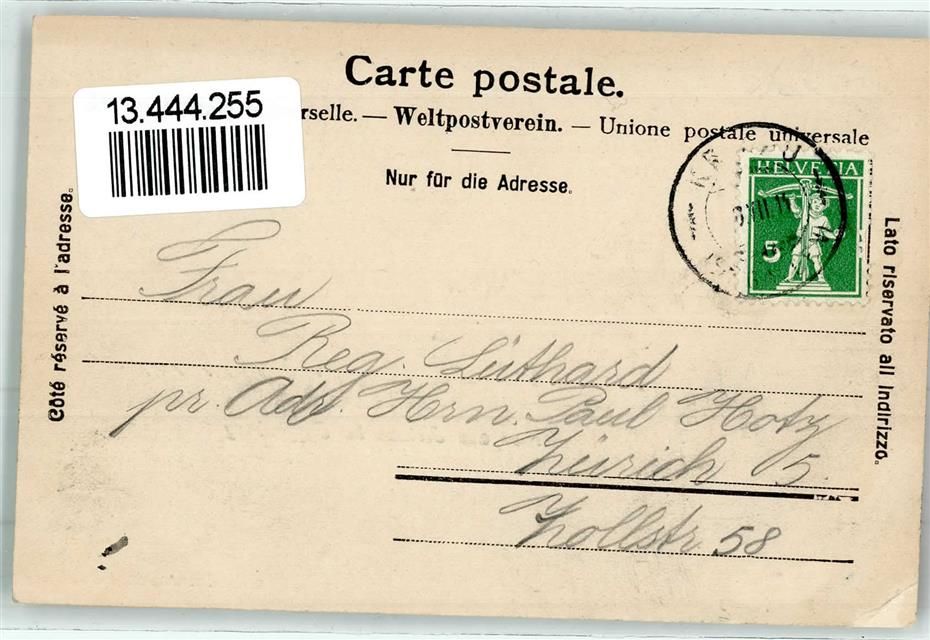 Carte postale.
13.444.255
rselle. — Weltpostverein. — Unione postale universale
Nur für die Adresse.
HELVETIA
5
Côté réservé à l'adresse.
Lato riservato all indirizzo.
Frau
Reg. Lüthard
pr. Adr. Hrn. Paul Hotz
Zürich 5.
Zollstr 58